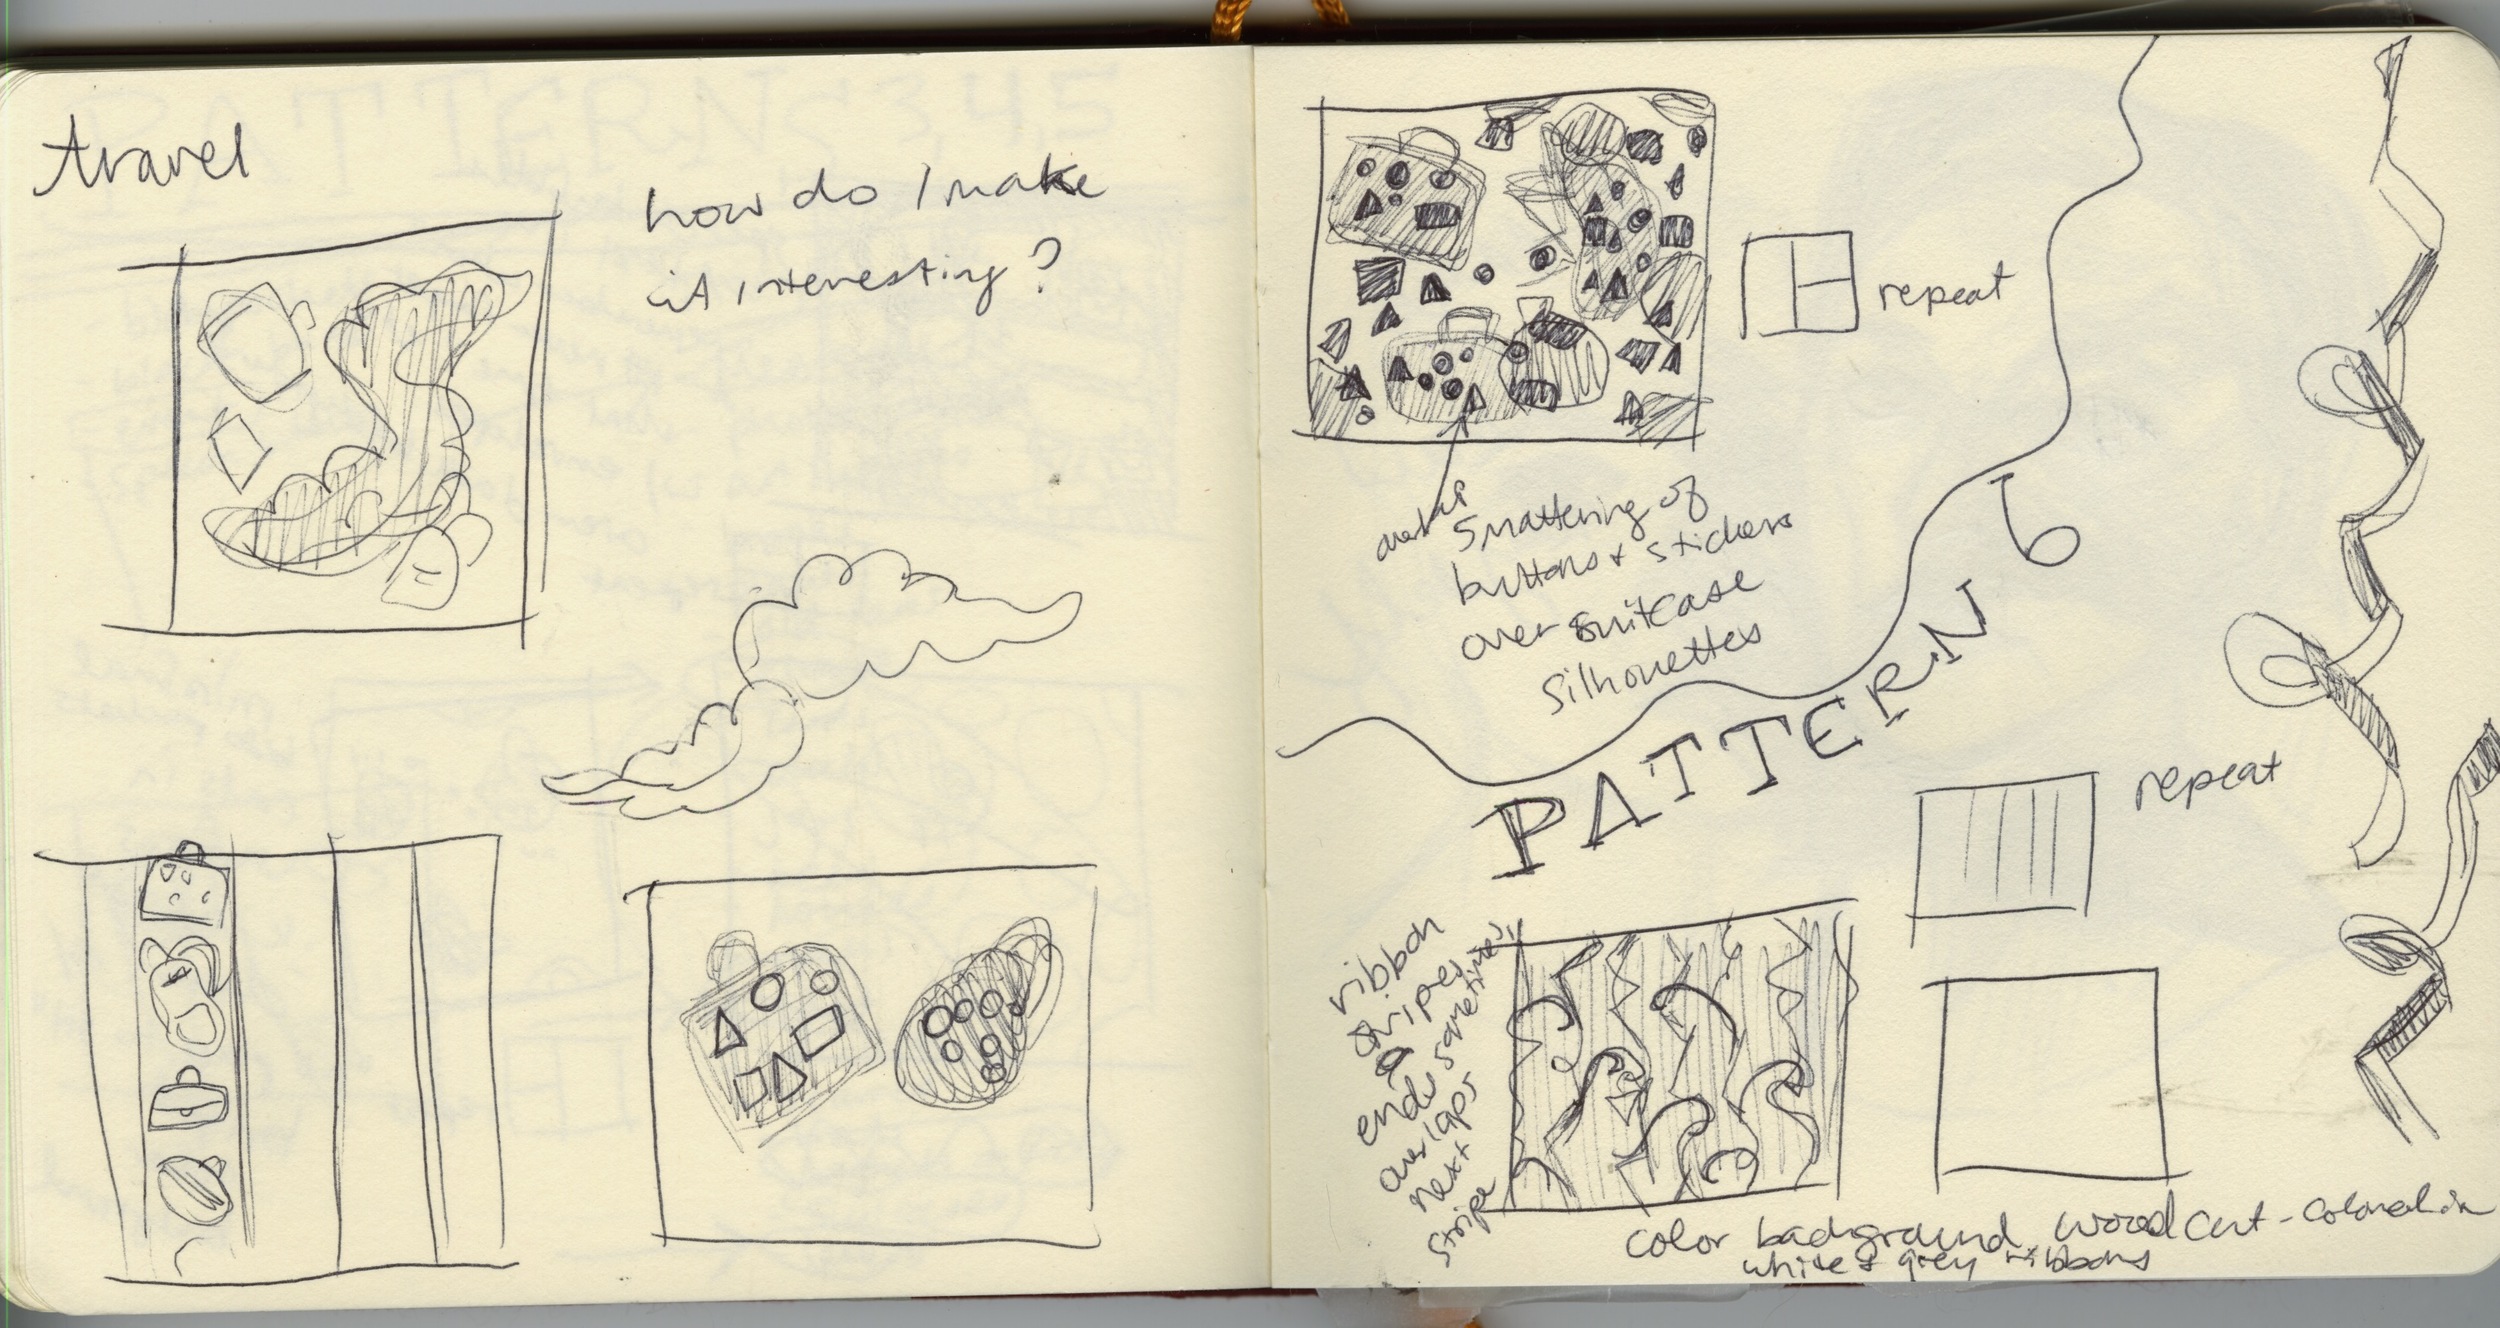 travel
how do I make
it interesting?
repeat
Smattering of
buttons + stickers
over suitcase
silhouettes
PATTERN 6
repeat
ribbon
stripes
ends sometimes
overlaps
next
stripe
color background, woodcut - colored in
white & grey ribbons